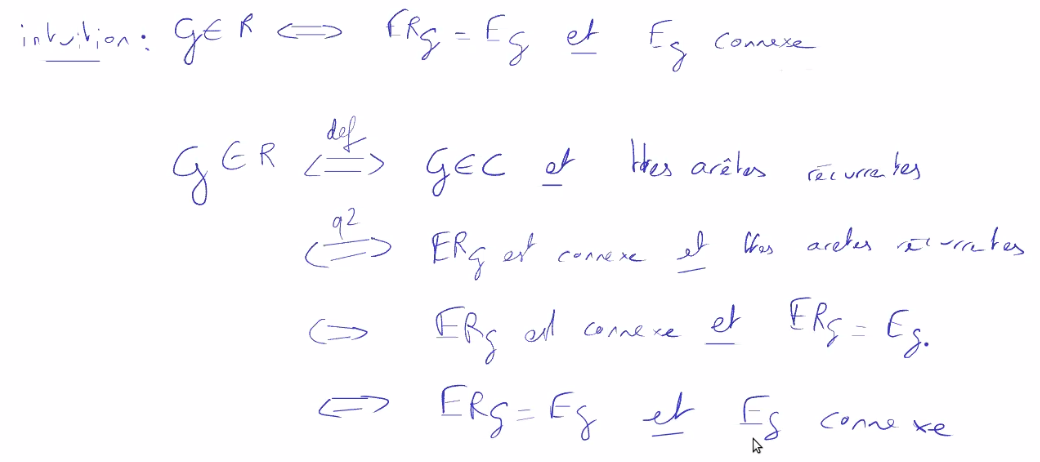 intuition : G∈R ⟺ ERg = Eg et Eg connexe
def
G∈R ⟺ G∈C et ttes arêtes récurrentes
q2
⟺ ERg est connexe et ttes aretes récurrentes
⟺ ERg est connexe et ERg = Eg.
⟺ ERg = Eg et Eg connexe